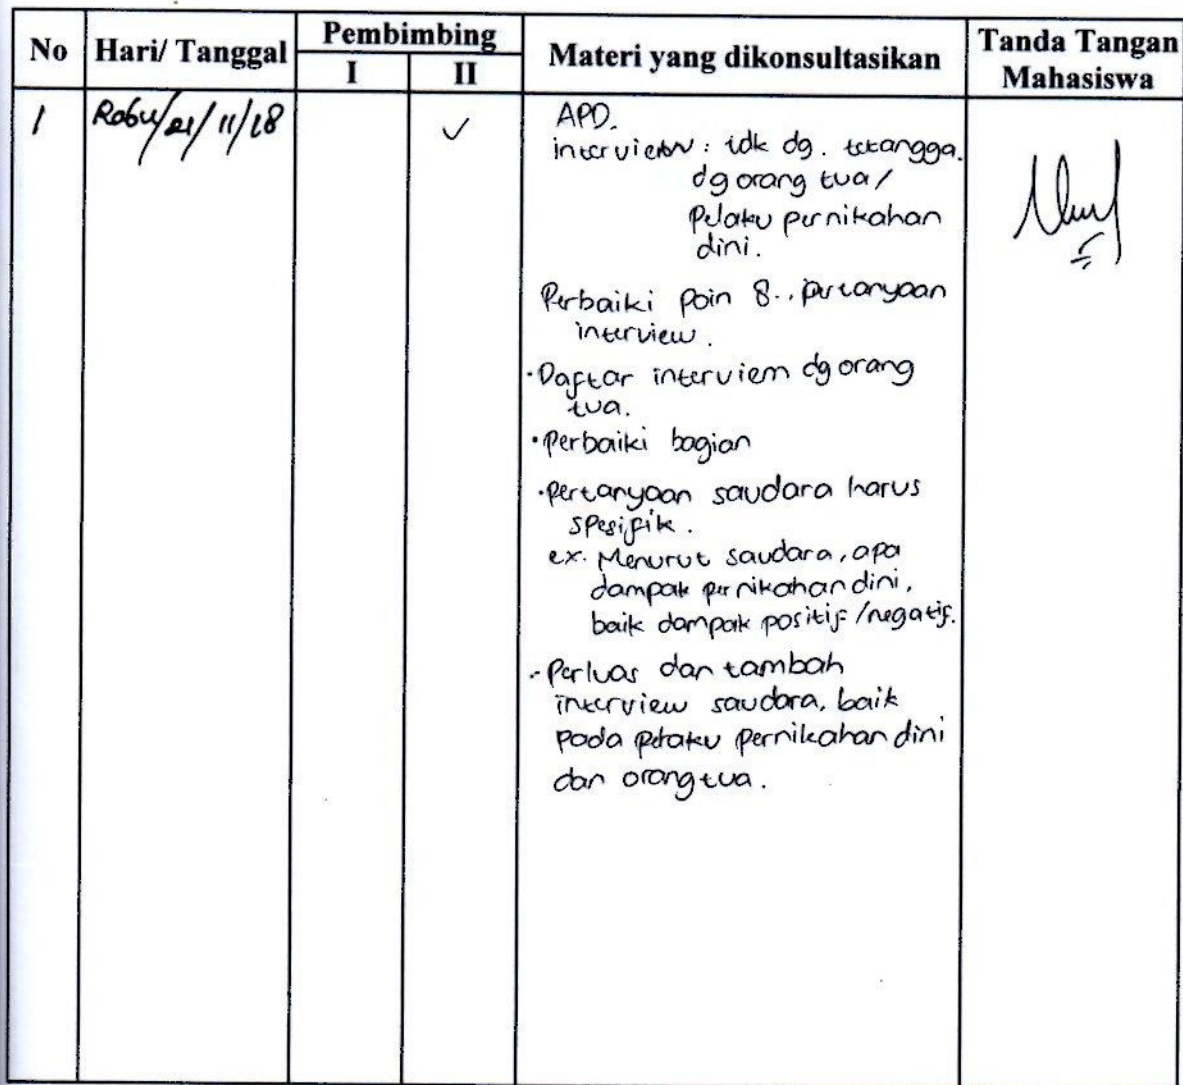 No Hari/ Tanggal Pembimbing Materi yang dikonsultasikan Tanda Tangan Mahasiswa
I II
1 Rabu/21/11/18 ✓ APD.
interview : tdk dg. tetangga.
dg orang tua/
Pelaku pernikahan
dini.
Perbaiki poin 8.. pertanyaan
interview.
·Daftar interviem dg orang
tua.
·Perbaiki bagian
·Pertanyaan saudara harus
spesifik.
ex. Menurut saudara, apa
dampak pernikahan dini,
baik dampak positif/negatif.
·Perluas dan tambah
interview saudara, baik
pada pelaku pernikahan dini
dan orang tua.